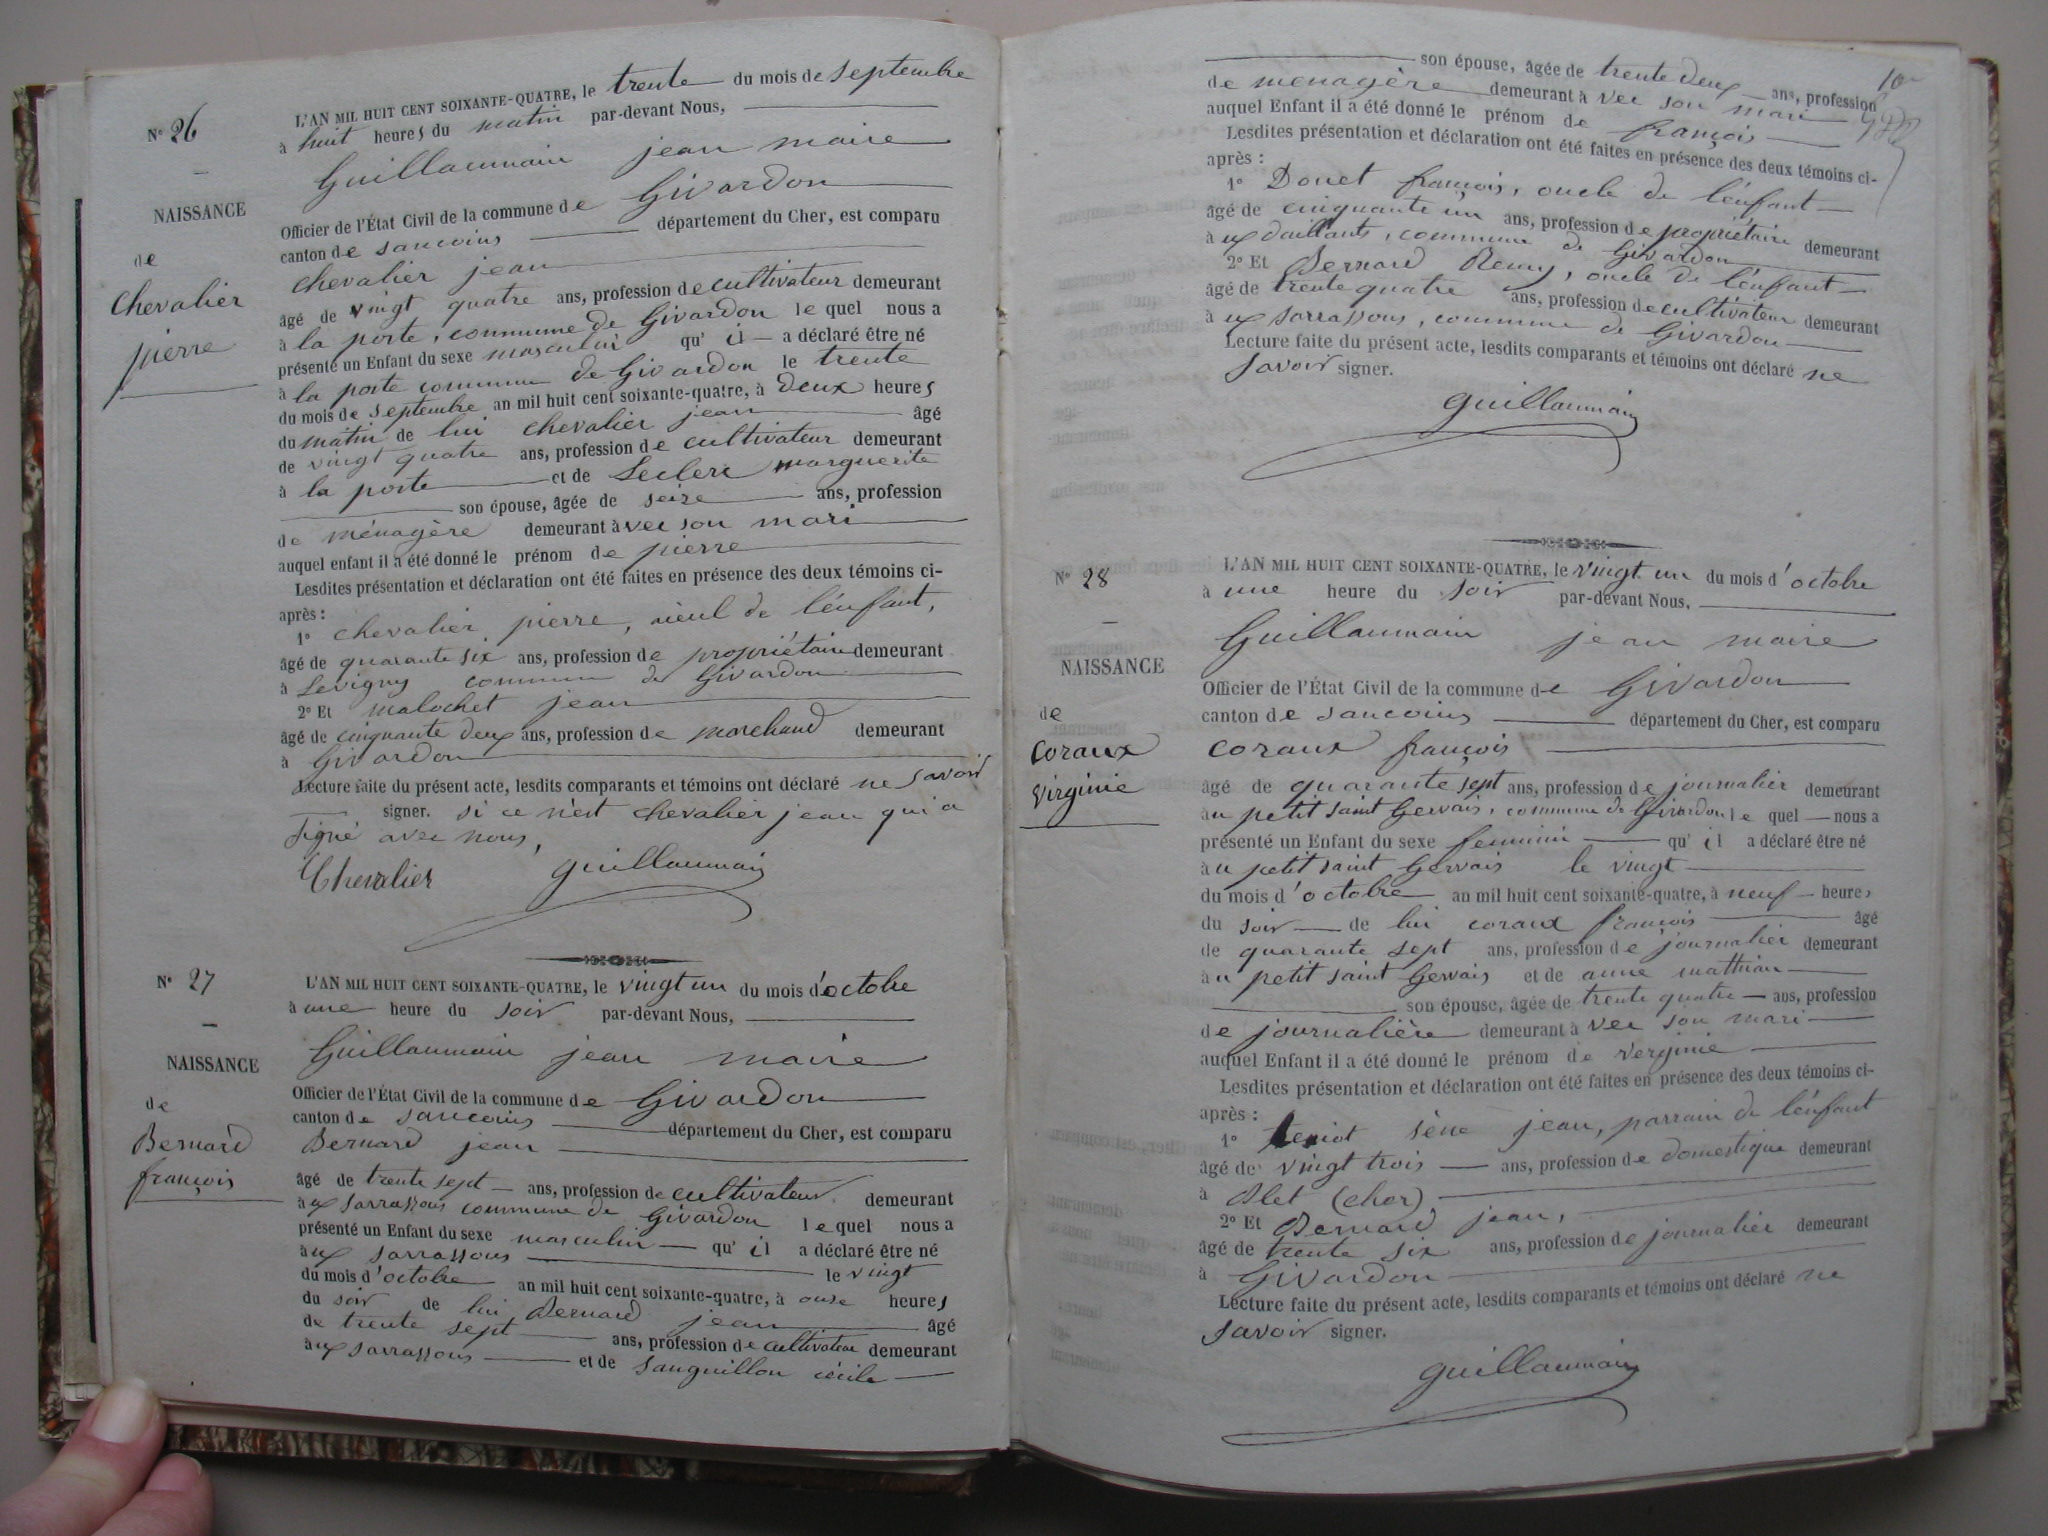 N° 26
NAISSANCE
de
Chevalier
pierre
L'AN MIL HUIT CENT SOIXANTE-QUATRE, le trente du mois de septembre
à huit heures du matin par-devant Nous,
Guillaumain jean maire
Officier de l'État Civil de la commune de Givardon
canton de sancoins département du Cher, est comparu
chevalier jean
âgé de vingt quatre ans, profession de cultivateur demeurant
à la porte, commune de Givardon lequel nous a
présenté un Enfant du sexe masculin qu'il a déclaré être né
à la porte commune de Givardon le trente
du mois de septembre an mil huit cent soixante-quatre, à deux heures
du matin de lui chevalier jean âgé
de vingt quatre ans, profession de cultivateur demeurant
à la porte et de Leclerc marguerite
son épouse, âgée de seize ans, profession
de ménagère demeurant àvec son mari
auquel enfant il a été donné le prénom de pierre
Lesdites présentation et déclaration ont été faites en présence des deux témoins ci-
après :
1° chevalier pierre, aieul de l'énfant,
âgé de quarante six ans, profession de propriétaire demeurant
à Levigny commune de Givardon
2° Et malochet jean
âgé de cinquante deux ans, profession de marchand demeurant
à Givardon
Lecture faite du présent acte, lesdits comparants et témoins ont déclaré ne savoir
signer. si ce n'est chevalier jean qui a
signé avec nous,
Chevalier guillaumain
N° 27
NAISSANCE
de
Bernard
françois
L'AN MIL HUIT CENT SOIXANTE-QUATRE, le vingt un du mois d'octobre
à une heure du soir par-devant Nous,
Guillaumain jean maire
Officier de l'État Civil de la commune de Givardon
canton de sancoins département du Cher, est comparu
Bernard jean
âgé de trente sept ans, profession de cultivateur demeurant
àux sarrassons commune de Givardon lequel nous a
présenté un Enfant du sexe masculin qu'il a déclaré être né
àux sarrassons le vingt
du mois d'octobre an mil huit cent soixante-quatre, à onze heures
du soir de lui Bernard jean âgé
de trente sept ans, profession de cultivateur demeurant
àux sarrassons et de sanguillon cécile
10
son épouse, âgée de trente deux ans, profession
de menagère demeurant àvec son mari
auquel Enfant il a été donné le prénom de françois
Lesdites présentation et déclaration ont été faites en présence des deux témoins ci-
après :
1° Douet françois, oncle de l'énfant
âgé de cinquante un ans, profession de propriétaire demeurant
àux daillants, commune de Givardon
2° Et Bernard Remy, oncle de l'énfant
âgé de trente quatre ans, profession de cultivateur demeurant
àux sarrassons, commune de Givardon
Lecture faite du présent acte, lesdits comparants et témoins ont déclaré ne
savoir signer.
guillaumain
N° 28
NAISSANCE
de
coraux
virginie
L'AN MIL HUIT CENT SOIXANTE-QUATRE, le vingt un du mois d'octobre
à une heure du soir par-devant Nous,
Guillaumain jean maire
Officier de l'État Civil de la commune de Givardon
canton de sancoins département du Cher, est comparu
coraux françois
âgé de quarante sept ans, profession de journalier demeurant
àu petit saint Gervais, commune de Givardon lequel nous a
présenté un Enfant du sexe feminin qu'il a déclaré être né
àu petit saint Gervais le vingt
du mois d'octobre an mil huit cent soixante-quatre, à neuf heures
du soir de lui coraux françois âgé
de quarante sept ans, profession de journalier demeurant
àu petit saint Gervais et de anne
son épouse, âgée de trente quatre ans, profession
de journalière demeurant àvec son mari
auquel Enfant il a été donné le prénom de verginie
Lesdites présentation et déclaration ont été faites en présence des deux témoins ci-
après :
1° jean, parrain de l'énfant
âgé de vingt trois ans, profession de domestique demeurant
à Blet (cher)
2° Et Bernard jean,
âgé de trente six ans, profession de journalier demeurant
à Givardon
Lecture faite du présent acte, lesdits comparants et témoins ont déclaré ne
savoir signer.
guillaumain